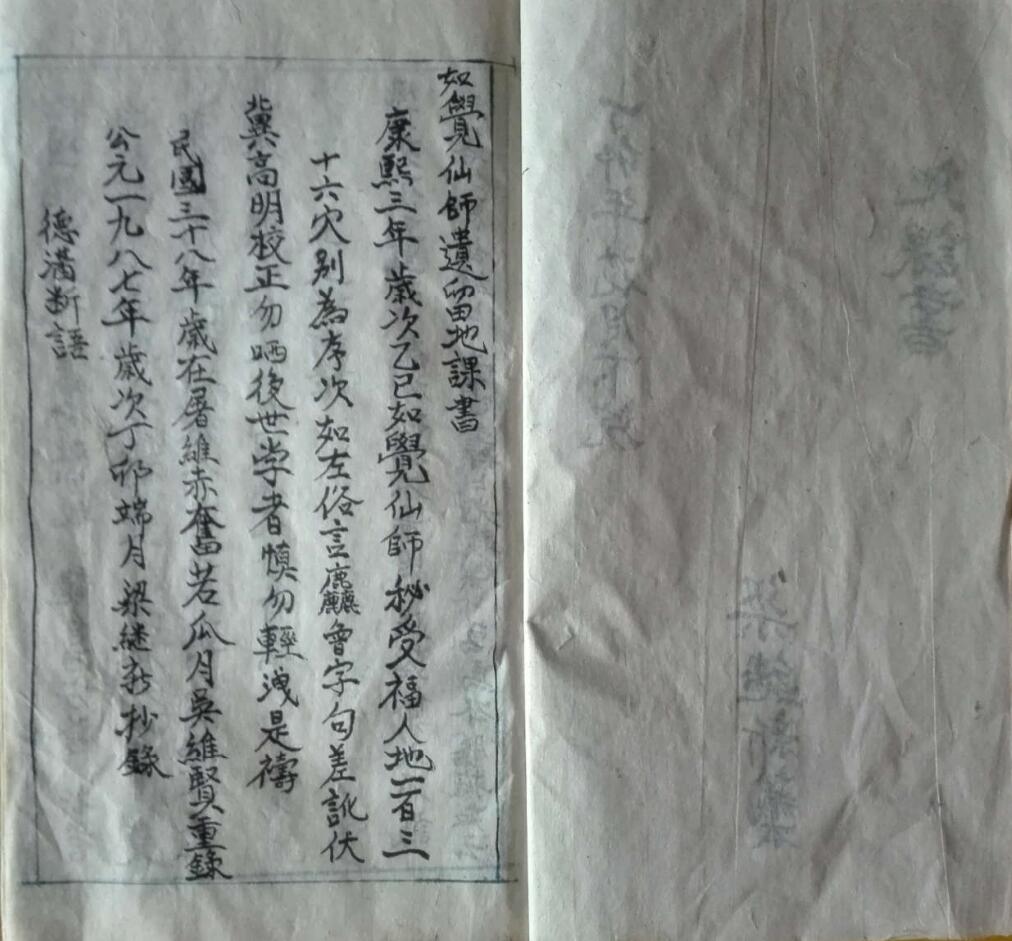 如覺仙師遺留地課書
康熙三年歲次乙巳如覺仙師秘受福人地一百三
十六穴别為序次如左俗言麤會字句差訛伏
北冀高明校正勿晒後世学者慎勿輕洩是禱
民國三十八年歲在屠維赤奮若瓜月吳維賢重錄
公元一九八七年歲次丁卯端月梁繼新抄錄
德滿断語